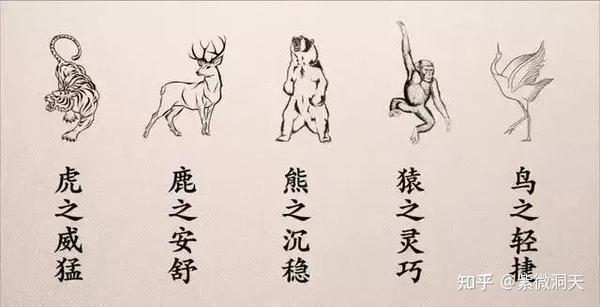 虎之威猛
鹿之安舒
熊之沉稳
猿之灵巧
鸟之轻捷
知乎 @紫微洞天